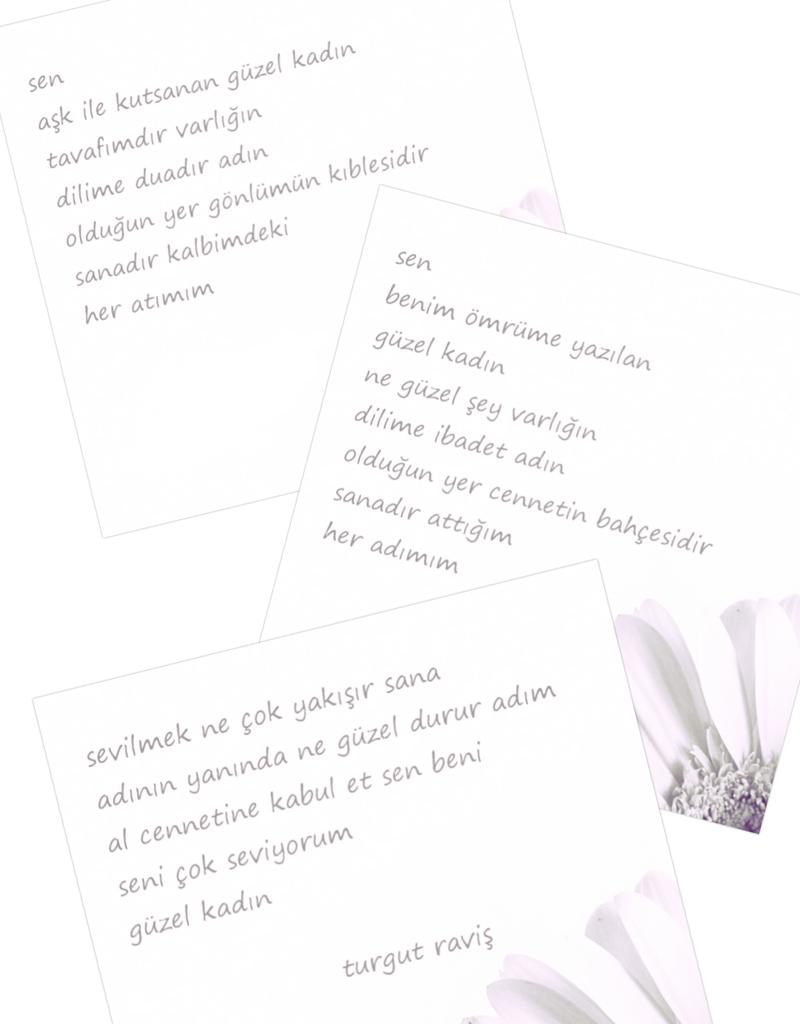 sen
aşk ile kutsanan güzel kadın
tavafımdır varlığın
dilime duadır adın
olduğun yer gönlümün kıblesidir
sanadır kalbimdeki
her atımım
sen
benim ömrüme yazılan
güzel kadın
ne güzel şey varlığın
dilime ibadet adın
olduğun yer cennetin bahçesidir
sanadır attığım
her adımım
sevilmek ne çok yakışır sana
adının yanında ne güzel durur adım
al cennetine kabul et sen beni
seni çok seviyorum
güzel kadın
turgut raviş